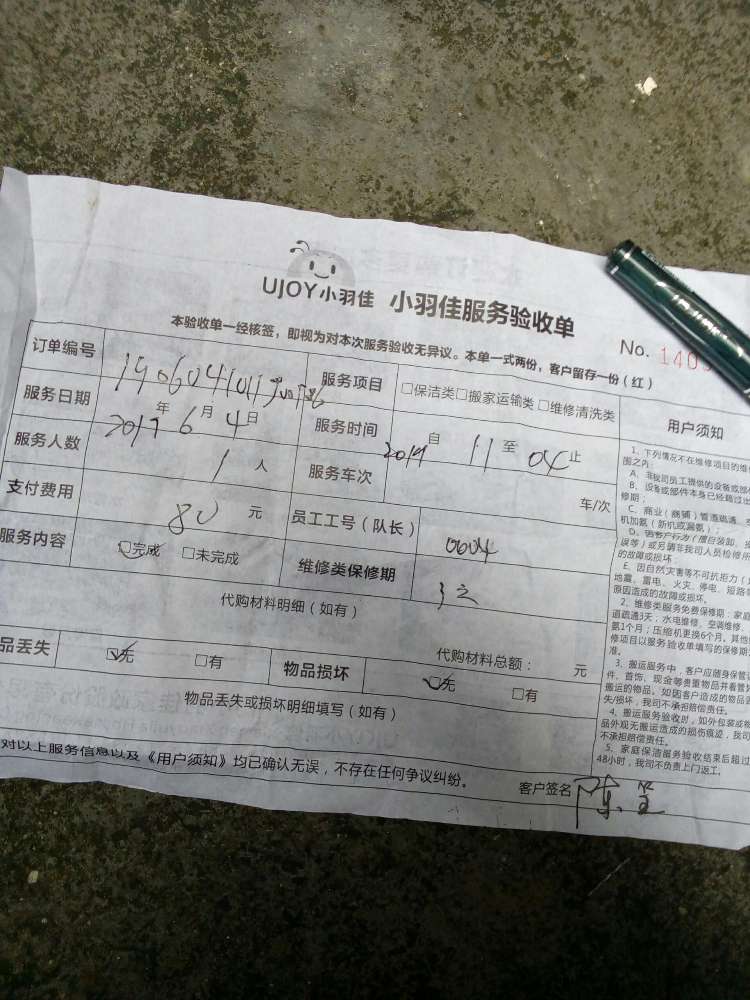 UJOY小羽佳 小羽佳服务验收单
No. 140
本验收单一经核签，即视为对本次服务验收无异议。本单一式两份，客户留存一份（红）
订单编号
服务项目 □保洁类□搬家运输类□维修清洗类
服务日期 2019年6月4日
服务时间 自 11 至 止
服务人数 1人
服务车次 车/次
支付费用 80元
员工工号（队长） 0604
服务内容 ☑完成 □未完成
维修类保修期
代购材料明细（如有）
代购材料总额： 元
品丢失 ☑无 □有
物品损坏 ☑无 □有
物品丢失或损坏明细填写（如有）
对以上服务信息以及《用户须知》均已确认无误，不存在任何争议纠纷。
客户签名 陈
用户须知
1、下列情况不在维修项目的维
围之内：
A、非我司员工提供的设备或部
B、设备或部件本身已经超过
修期；
C、商业（商铺）管道疏通、
机加氨（新机或漏氨）；
D、因客户行为（擅自装卸、
误等）或另请非我司人员检修所
的故障或损坏
E、因自然灾害等不可抗拒力（
地震、雷电、火灾、停电、短路等
原因造成的故障或损坏。
2、维修类服务免费保修期：家庭
道疏通3天；水电维修、空调维修、
氨1个月；压缩机更换6个月。其他
修项目以服务验收单填写的保修期
准。
3、搬运服务中，客户应随身保管
件、首饰、现金等贵重物品并看管
搬运的物品。如因客户造成的物品
失/损坏，我司不承担赔偿责任。
4、搬运服务验收时，如外包装或物
品外观无搬运造成的损伤痕迹，我司
不承担赔偿责任。
5、家庭保洁服务验收结束后超过
48小时，我司不负责上门返工。